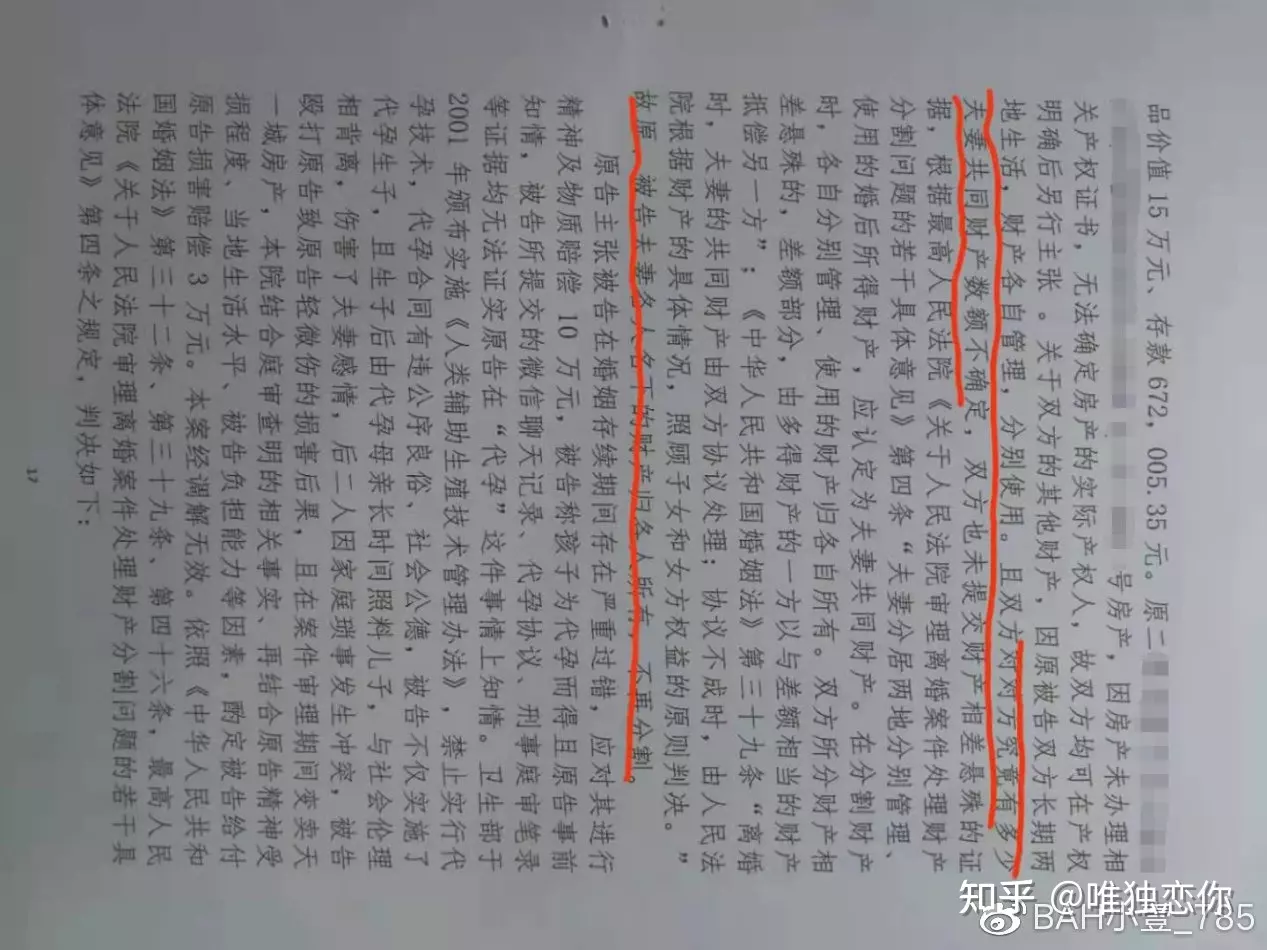 品价值 15 万元、存款 672,005.35 元。原二
号房产，因房产未办理相
关产权证书，无法确定房产的实际产权人，故双方均可在产权
明确后另行主张。关于双方的其他财产，因原被告双方长期两
地生活，财产各自管理，分别使用。且双方对对方究竟有多少
夫妻共同财产数额不确定，双方也未提交财产相差悬殊的证
据，根据最高人民法院《关于人民法院审理离婚案件处理财产
分割问题的若干具体意见》第四条“夫妻分居两地分别管理、
使用的婚后所得财产，应认定为夫妻共同财产。在分割财产
时，各自分别管理、使用的财产归各自所有。双方所分财产相
差悬殊的，差额部分，由多得财产的一方以与差额相当的财产
抵偿另一方”；《中华人民共和国婚姻法》第三十九条“离婚
时，夫妻的共同财产由双方协议处理；协议不成时，由人民法
院根据财产的具体情况，照顾子女和女方权益的原则判决。”
故原、被告夫妻各人名下的财产归各人所有，不再分割。
原告主张被告在婚姻存续期间存在严重过错，应对其进行
精神及物质赔偿 10 万元，被告称孩子为代孕而得且原告事前
知情，被告所提交的微信聊天记录、代孕协议、刑事庭审笔录
等证据均无法证实原告在“代孕”这件事情上知情。卫生部于
2001 年颁布实施《人类辅助生殖技术管理办法》，禁止实行代
孕技术，代孕合同有违公序良俗、社会公德，被告不仅实施了
代孕生子，且生子后由代孕母亲长时间照料儿子，与社会伦理
相背离，伤害了夫妻感情，后二人因家庭琐事发生冲突，被告
殴打原告致原告轻微伤的损害后果，且在案件审理期间变卖天
一城房产，本院结合庭审查明的相关事实、再结合原告精神受
损程度、当地生活水平、被告负担能力等因素，酌定被告给付
原告损害赔偿 3 万元。本案经调解无效。依照《中华人民共和
国婚姻法》第三十二条、第三十九条、第四十六条，最高人民
法院《关于人民法院审理离婚案件处理财产分割问题的若干具
体意见》第四条之规定，判决如下：
17
知乎 @唯独恋你
BAH小壹_785